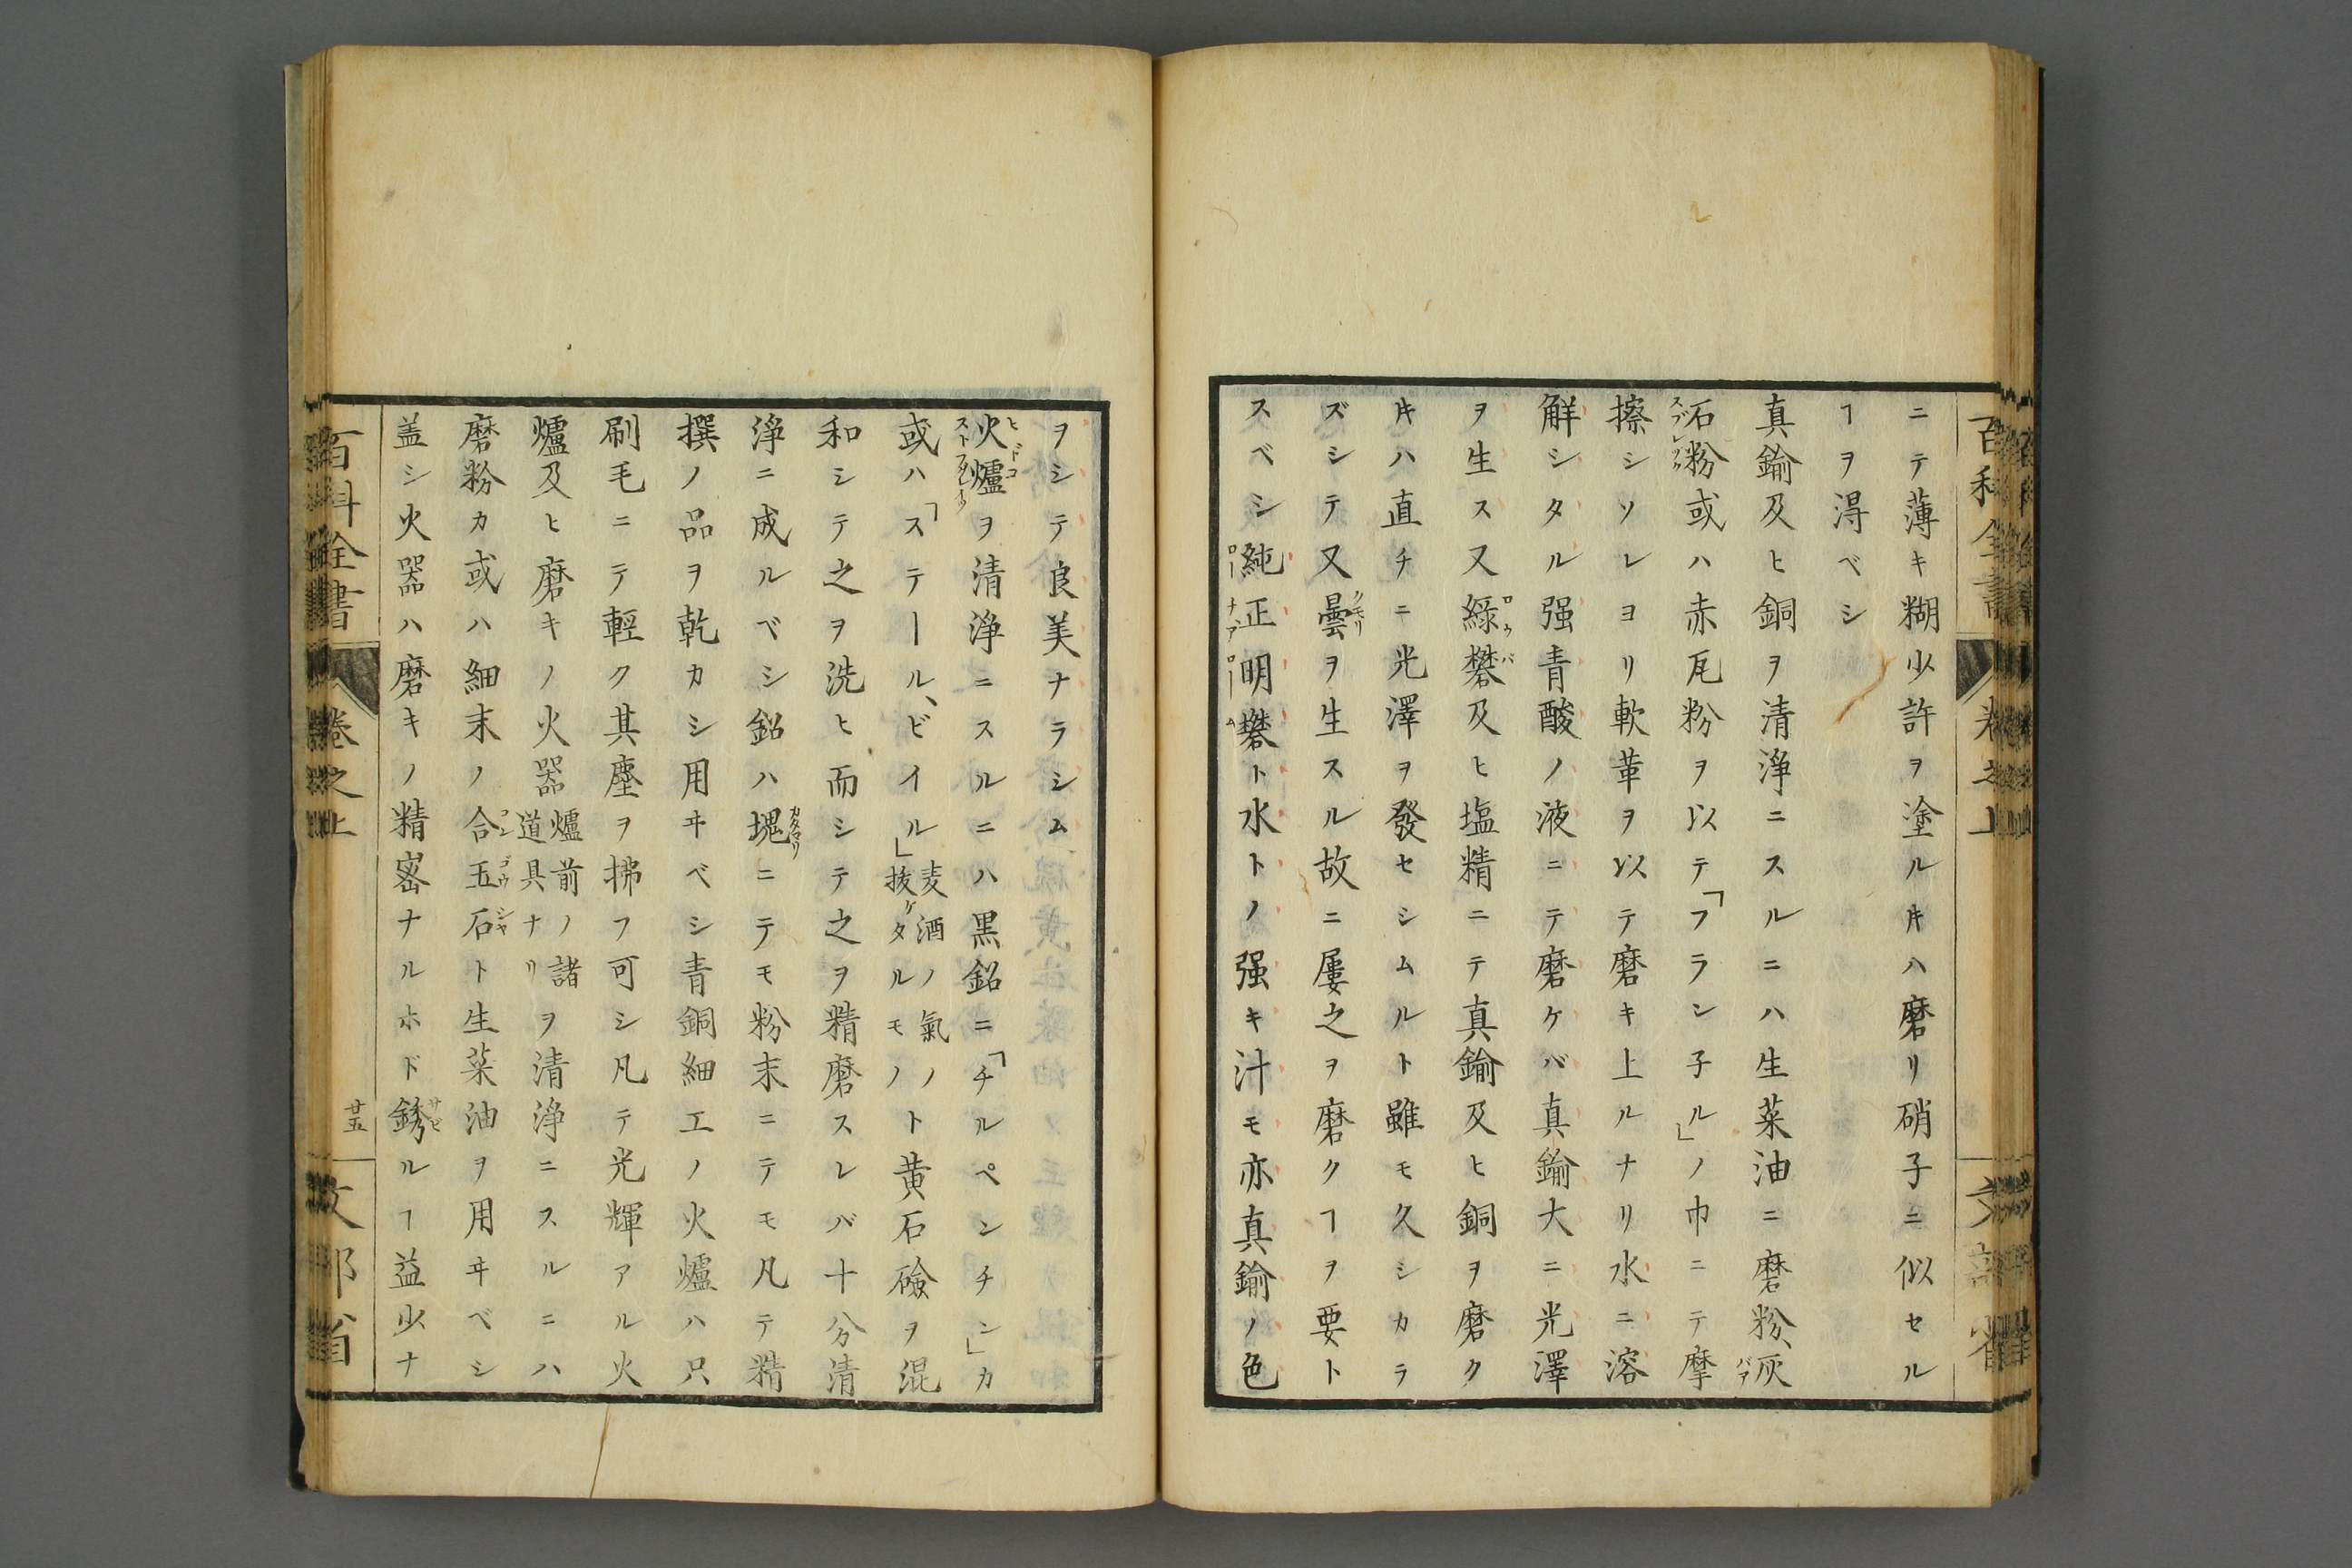 百科全書 卷之上 文部省
ニテ薄キ糊少許ヲ塗ルキハ磨リ硝子ニ似セル
ヿヲ淂ベシ
真鍮及ヒ銅ヲ清浄ニスルニハ生菜油ニ磨粉、灰
石粉或ハ赤瓦粉ヲ以テ「フラン子ル」ノ巾ニテ摩
擦シソレヨリ軟革ヲ以テ磨キ上ルナリ水ニ溶
觧シタル强青酸ノ液ニテ磨ケバ真鍮大ニ光澤
ヲ生ス又綠礬及ヒ塩精ニテ真鍮及ヒ銅ヲ磨ク
キハ直チニ光澤ヲ發セシムルト雖モ久シカラ
ズシテ又曇ヲ生スル故ニ屢之ヲ磨クヿヲ要ト
スベシ純正明礬ト水トノ强キ汁モ亦真鍮ノ色
ヲシテ良美ナラシム
火爐ヲ清浄ニスルニハ黒鉛ニ「チルペンチン」カ
或ハ「ステール、ビイル」麦酒ノ氣ノ抜ケタルモノト黄石鹸ヲ混
和シテ之ヲ洗ヒ而シテ之ヲ精磨スレバ十分清
浄ニ成ルベシ鉛ハ塊ニテモ粉末ニテモ凡テ精
撰ノ品ヲ乾カシ用ヰベシ青銅細工ノ火爐ハ只
刷毛ニテ輕ク其塵ヲ拂フ可シ凡テ光輝アル火
爐及ヒ磨キノ火器爐前ノ諸道具ナリヲ清浄ニスルニハ
磨粉カ或ハ細末ノ合玉石ト生菜油ヲ用ヰベシ
盖シ火器ハ磨キノ精宻ナルホド銹ルヿ益少ナ
百科全書 卷之上 廿五 文部省